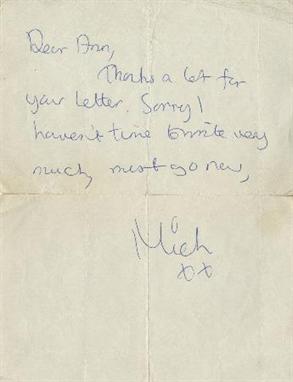 Dear Ann,
Thanks a lot for
your letter. Sorry I
haven't time to write very
much, must go now,
Mick
xx